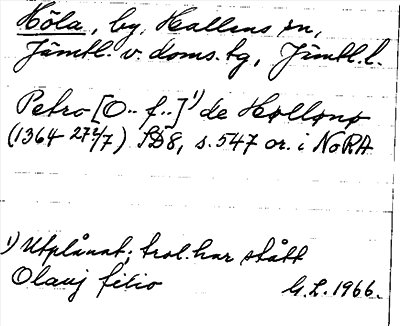 Höla, by, Hallens sn,
Jämtl. v. doms.tg, Jämtl. l.
Petro [O.. f..]¹⁾ de Hølløno
(1364 27/7) SD8, s. 547 or. i NoRA
¹⁾ Utplånat; trol. har stått
Olauj filio G.L. 1966.